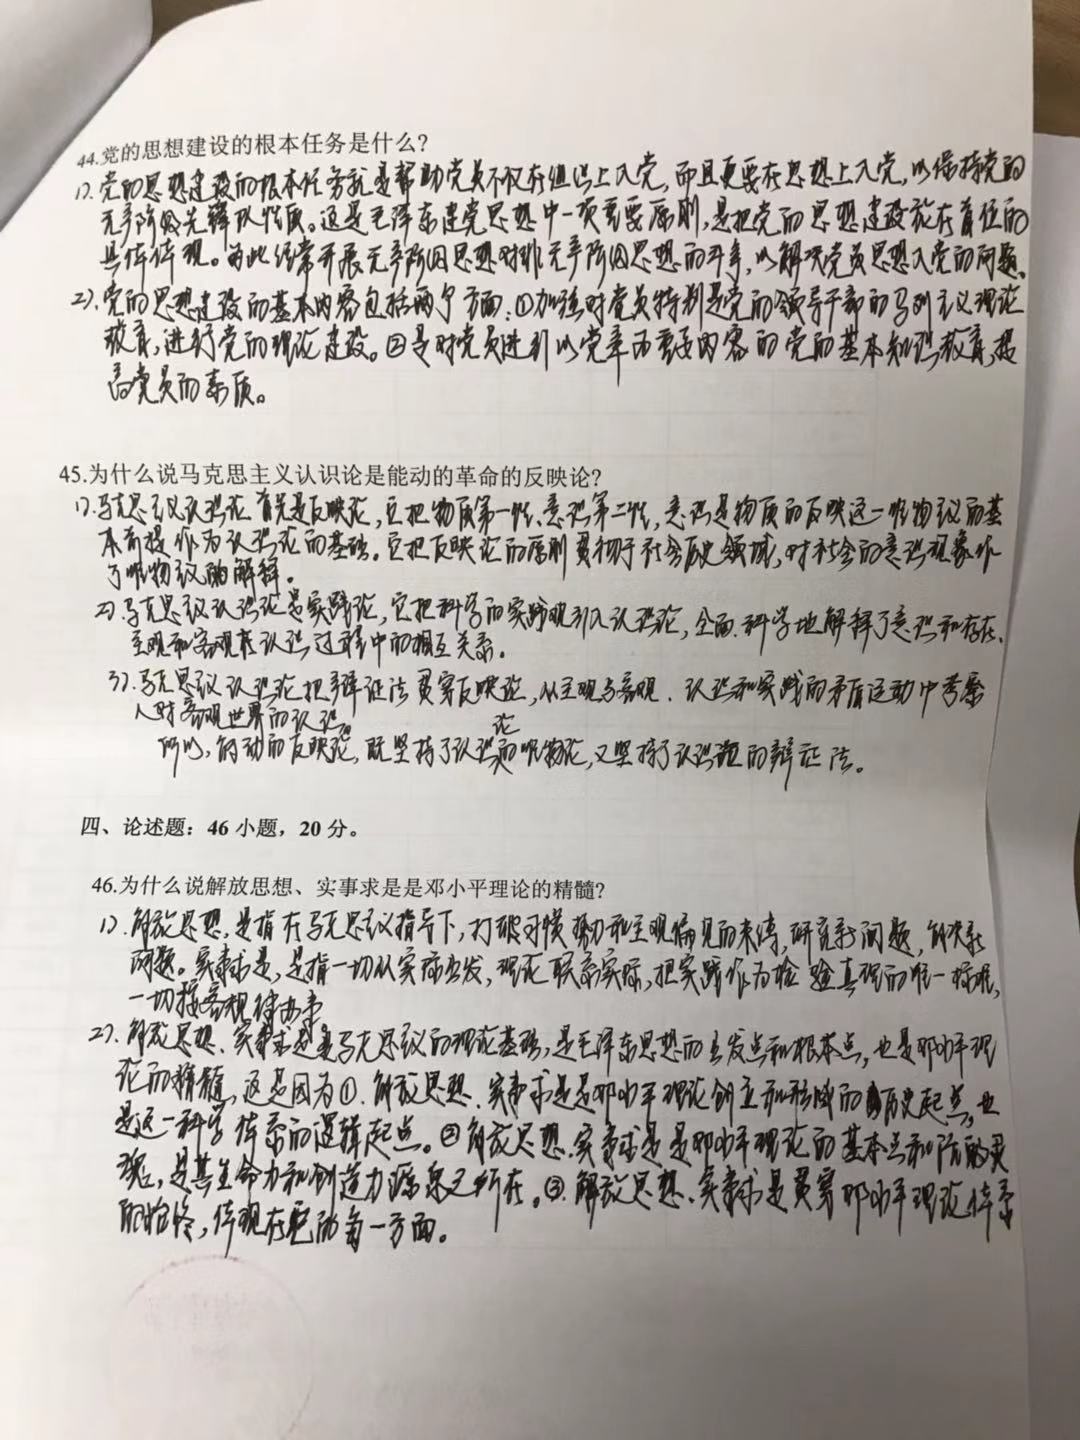 44.党的思想建设的根本任务是什么?
1).党的思想建设的根本任务就是帮助党员不仅在组织上入党,而且更要在思想上入党,以保持党的
无产阶级先锋队性质。这是毛泽东建党思想中一项重要原则,是把党的思想建设放在首位的
具体体现。为此经常开展无产阶级思想对非无产阶级思想的斗争,以解决党员思想入党的问题。
2).党的思想建设的基本内容包括两个方面:①加强对党员特别是党的领导干部的马列主义理论
教育,进行党的理论建设。②是对党员进行以党章为主要内容的党的基本知识教育,提
高党员的素质。
45.为什么说马克思主义认识论是能动的革命的反映论?
1).马克思主义认识论首先是反映论,它把物质第一性、意识第二性,意识是物质的反映这一唯物主义的基
本前提作为认识论的基础。它把反映论的原则贯彻于社会历史领域,对社会的意识现象作
了唯物主义的解释。
2).马克思主义认识论是实践论,它把科学的实践观引入认识论,全面.科学地解释了意识和存在、
主观和客观在认识过程中的相互关系。
3).马克思主义认识论把辩证法贯穿反映论,从主观与客观.认识和实践的矛盾运动中考察
人对客观世界的认识
所以,能动的反映论,既坚持了认识论的唯物论,又坚持了认识论的辩证法。
四、论述题:46 小题,20 分。
46.为什么说解放思想、实事求是是邓小平理论的精髓?
1).解放思想,是指在马克思主义指导下,打破习惯势力和主观偏见的束缚,研究新问题,解决新
问题。实事求是,是指一切从实际出发,理论联系实际,把实践作为检验真理的唯一标准,
一切按客观规律办事
2).解放思想、实事求是是马克思主义的理论基础,是毛泽东思想的出发点和根本点,也是邓小平理
论的精髓,这是因为①.解放思想.实事求是是邓小平理论创立和形成的历史起点,也
是这一科学体系的逻辑起点。②解放思想.实事求是是邓小平理论的基本点和活的灵
魂,是其生命力和创造力源泉之所在。③.解放思想、实事求是贯穿邓小平理论体系
的始终,体现在它的每一方面。